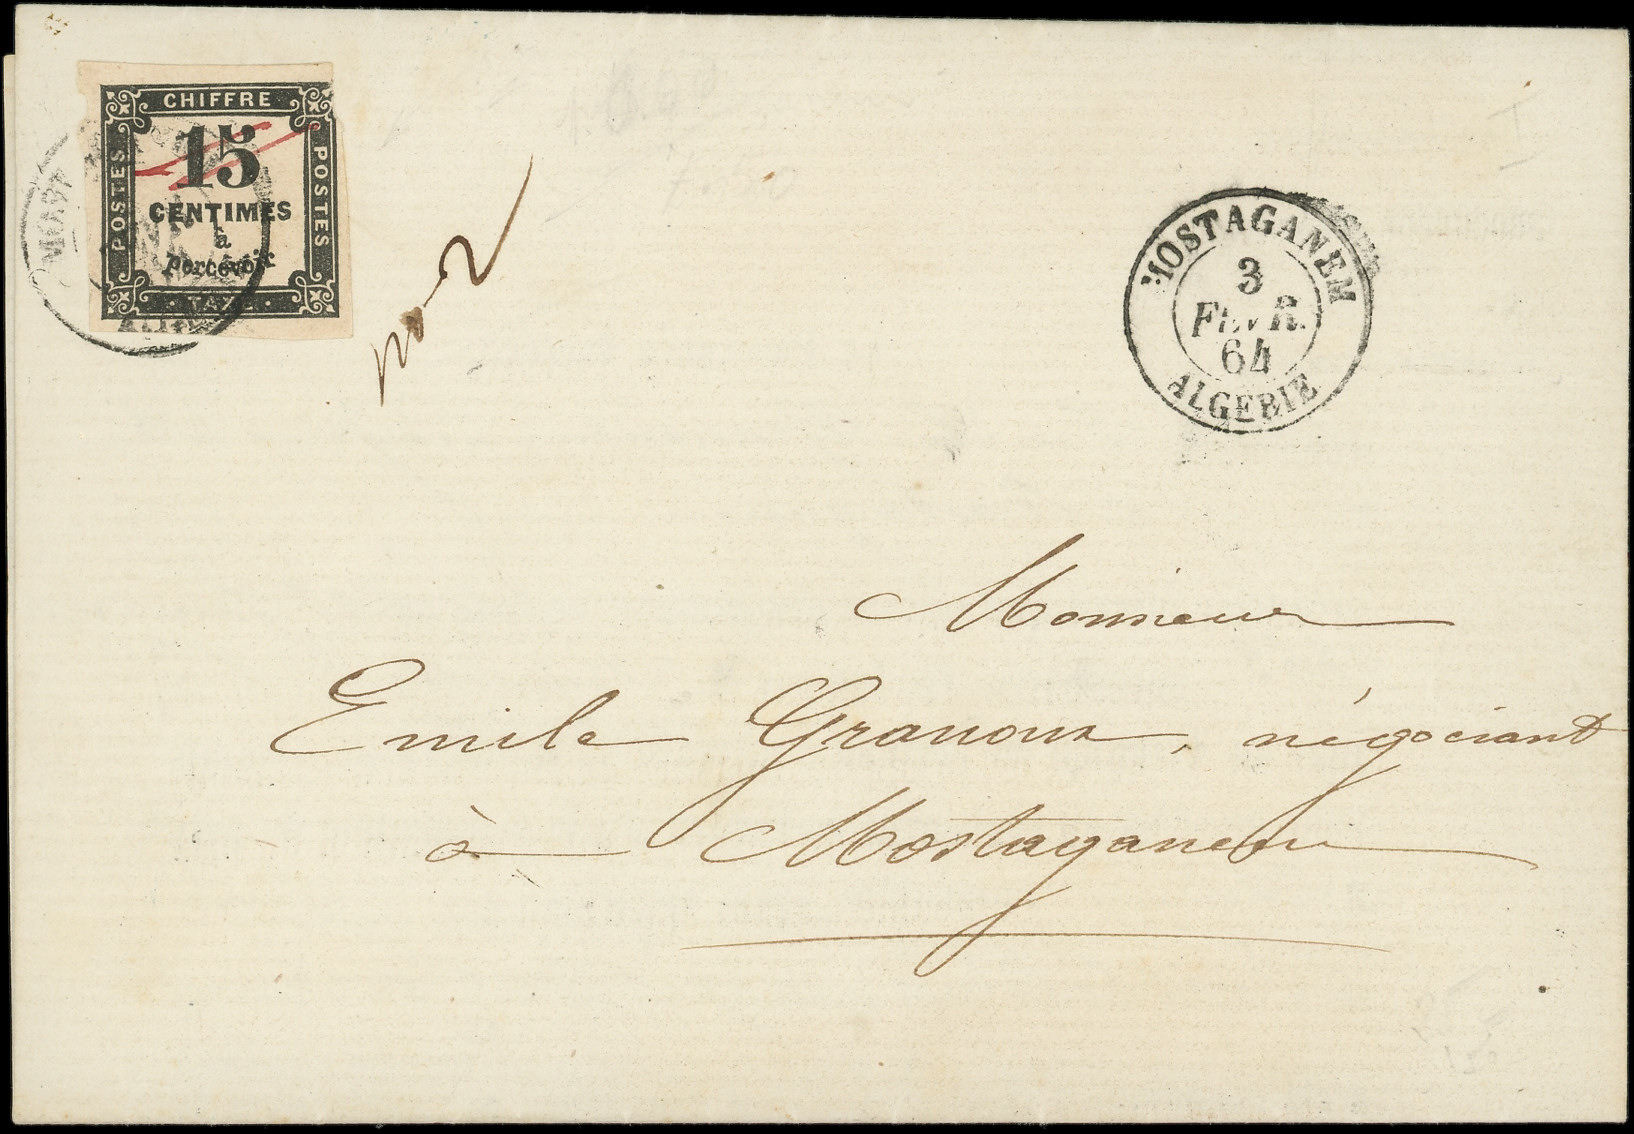 CHIFFRE
POSTES
15
CENTIMES
à
percevoir
POSTES
TAXE
MOSTAGANEM
3
FEVR.
64
ALGERIE
Monsieur
Emile Granoux, négociant
à Mostaganem